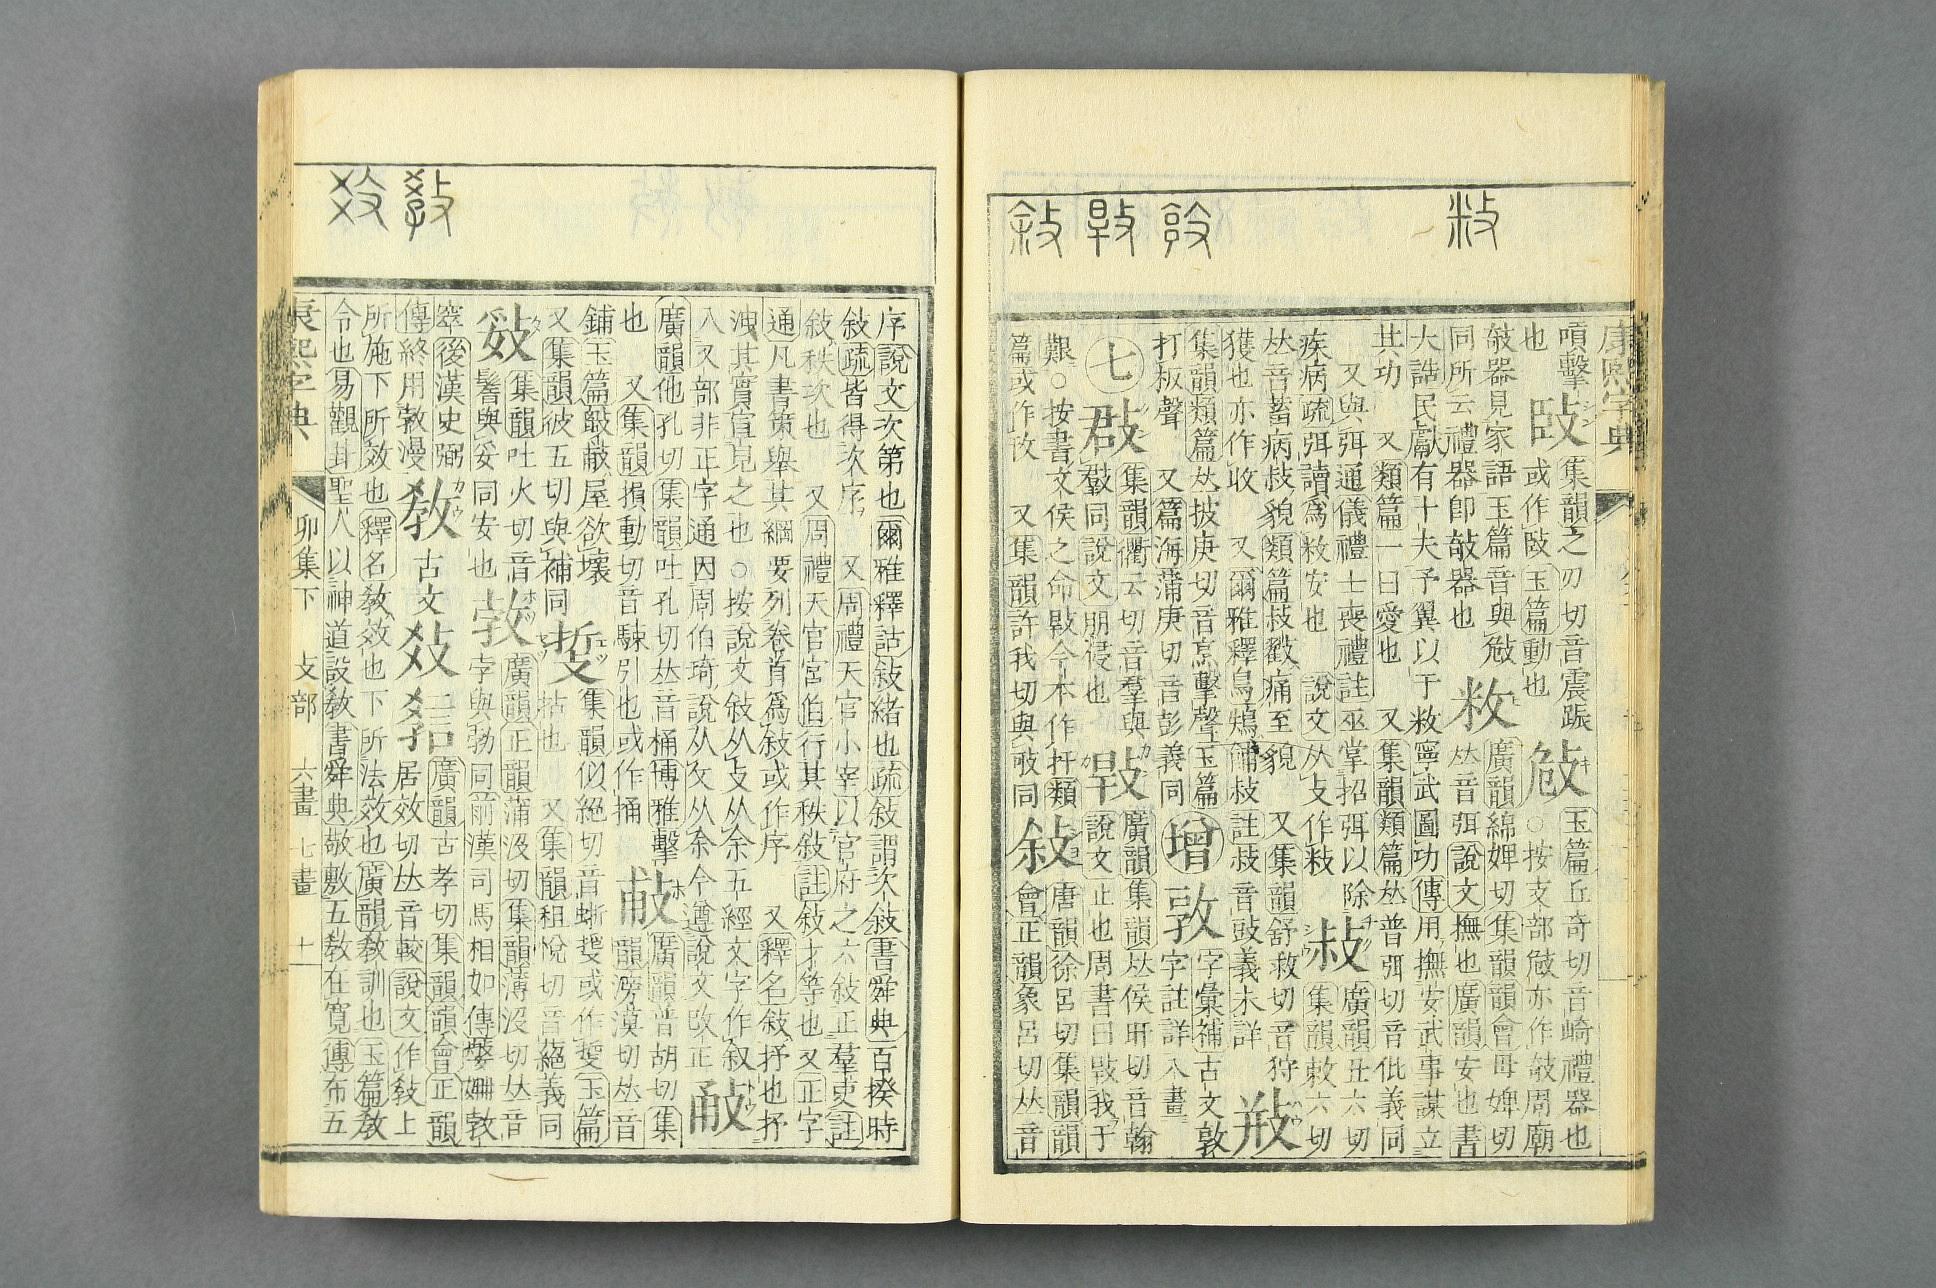 康熙字典
嗔擊
集韻之刃切音震䟴
玉篇丘奇切音崎禮器也
也
或作㪇玉篇動也
○按支部攱亦作㩻周廟
欹器見家語玉篇音與攱
敉
廣韻綿婢切集韻韻會母婢切
同所云禮器卽攲器也
𠀤音弭說文撫也廣韻安也書
大誥民獻有十夫予翼以于敉寧武圖功傳用撫安武事謀立
其功 又類篇一曰愛也 又集韻類篇𠀤普弭切音仳義同
又與弭通儀禮士喪禮註巫掌招弭以除
廣韻丑六切
疾病疏弭讀爲敉安也 說文从攴作敉
集韻敕六切
𠀤音蓄病㪇貌類篇㪇㱿痛至貌 又集韻舒救切音狩
獲也亦作收 又爾雅釋鳥鴩餔㪇註㪇音豉義未詳
集韻類篇𠀤披庚切音烹擊聲玉篇
字彙補古文敦
打板聲 又篇海蒲庚切音彭義同
增
敦
字註詳入畫
七
集韻衢云切音羣與
廣韻集韻𠀤侯旰切音翰
羣同說文朋侵也
說文止也周書曰敤我于
艱○按書文侯之命敤今本作扞類
敍
唐韻徐呂切集韻韻
篇或作攼 又集韻許我切與㰤同
會正韻象呂切𠀤音
序說文次第也爾雅釋詁敍緖也疏敍謂次敍書舜典百揆時
敍疏皆得次序 又周禮天官小宰以官府之六敍正羣吏註
敍秩次也 又周禮天官宮伯行其秩敍註敍才等也又正字
通凡書策舉其綱要列卷首爲敍或作序 又釋名敍抒也抒
洩其實宣見之也○按說文敍从攴从余五經文字作叙
入又部非正字通因周伯琦說从攵从余今遵說文改正
廣韻他孔切集韻吐孔切𠀤音桶博雅擊
廣韻普胡切集
也 又集韻損動切音駷引也或作捅
韻滂漠切𠀤音
鋪玉篇㱾㪏屋欲壞
集韻似絕切音蜥㨼或作㩉玉篇
又集韻彼五切與補同
拈也 又集韻租悅切音蕝義同
集韻吐火切音
敎
廣韻正韻蒲沒切集韻薄沒切𠀤音
髻與妥同安也
字與勃同前漢司馬相如傳媻姍敎
窣後漢史弼
敎
古文
廣韻古孝切集韻韻會正韻
傳終用敦漫
居效切𠀤音較說文作敎上
所施下所效也釋名敎效也下所法效也廣韻敎訓也玉篇敎
令也易觀卦聖人以神道設敎書舜典敬敷五敎在寬傳布五
康熙字典
卯集下 攴部 六畫 七畫 十一